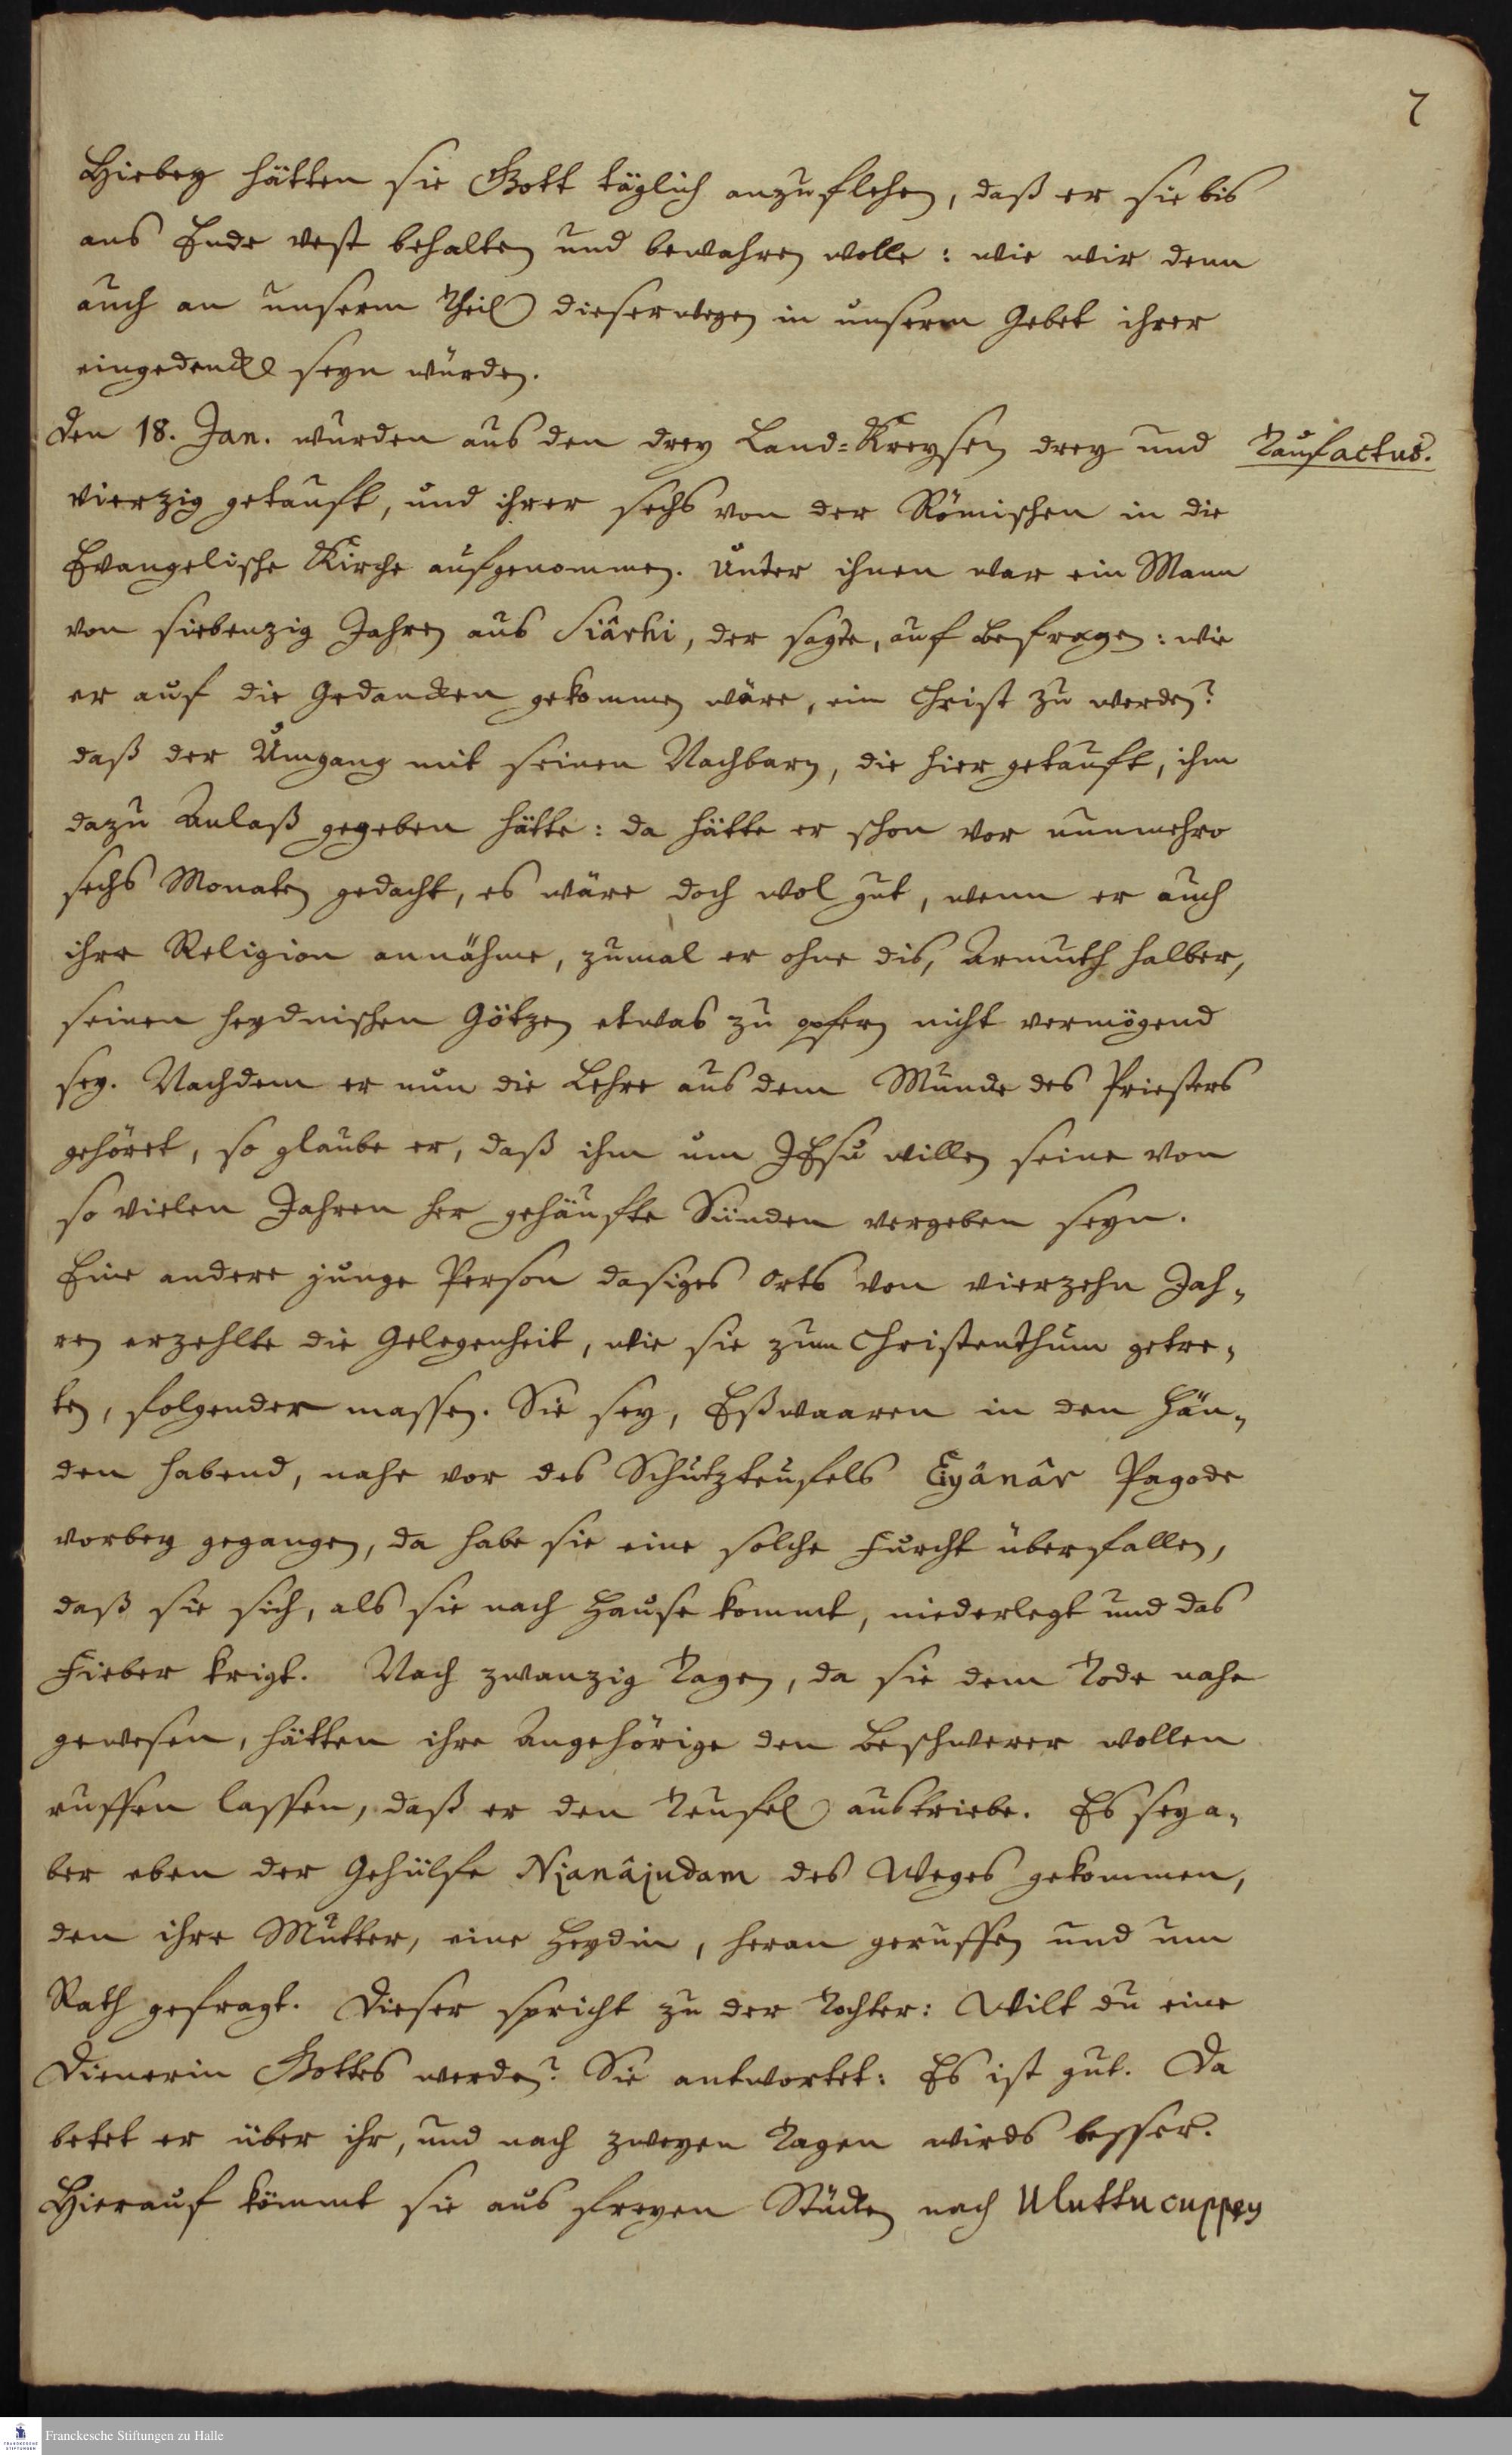 7
Hiebey hätten sie Gott täglich anzuflehen, daß er sie bis
ans Ende vest behalten und bewahren wolle: wie wir denn
auch an unserm Theil dieserwegen in unserm Gebet ihrer
eingedenck seyn würden.
Den 18. Jan. wurden aus den drey Land-Kreysen drey und
Taufactus.
vierzig getauft, und ihrer sechs von der Römischen in die
Evangelische Kirche aufgenommen. Unter ihnen war ein Mann
von siebenzig Jahren aus Siârhi, der sagte, auf Befragen: wie
er auf die Gedancken gekommen wäre, ein Christ zu werden?
daß der Umgang mit seinen Nachbarn, die hier getauft, ihm
dazu Anlaß gegeben hätte: da hätte er schon vor nunmehro
sechs Monaten gedacht, es wäre doch wol gut, wenn er auch
ihre Religion annähme, zumal er ohne dis, Armuth halber,
seinen heydnischen Götzen etwas zu opfern nicht vermögend
sey. Nachdem er nun die Lehre aus dem Munde des Priesters
gehöret, so glaube er, daß ihm um JEsu willen seine von
so vielen Jahren her gehäufte Sünden vergeben seyn.
Eine andere junge Person dasiges Orts von vierzehn Jah-
ren erzehlte die Gelegenheit, wie sie zum Christenthum getre-
ten, folgender massen. Sie sey, Eßwaaren in den Hän-
den habend, nahe vor des Schutzteufels Eiyânâr Pagode
vorbey gegangen, da habe sie eine solche Furcht überfallen,
daß sie sich, als sie nach Hause kommt, niederlegt und das
Fieber krigt. Nach zwanzig Tagen, da sie dem Tode nahe
gewesen, hätten ihre Angehörige den Beschwerer wollen
ruffen lassen, daß er den Teufel austriebe. Es sey a-
ber eben der Gehülfe Njanâjudam des Weges gekommen,
den ihre Mutter, eine Heydin, heran geruffen und um
Rath gefragt. Dieser spricht zu der Tochter: Wilt du eine
Dienerin Gottes werden? Sie antwortet: Es ist gut. Da
betet er über ihr, und nach zweyen Tagen wirds besser.
Hierauf kömmt sie aus freyen Stücken nach Uluttucuppey
Franckesche Stiftungen zu Halle